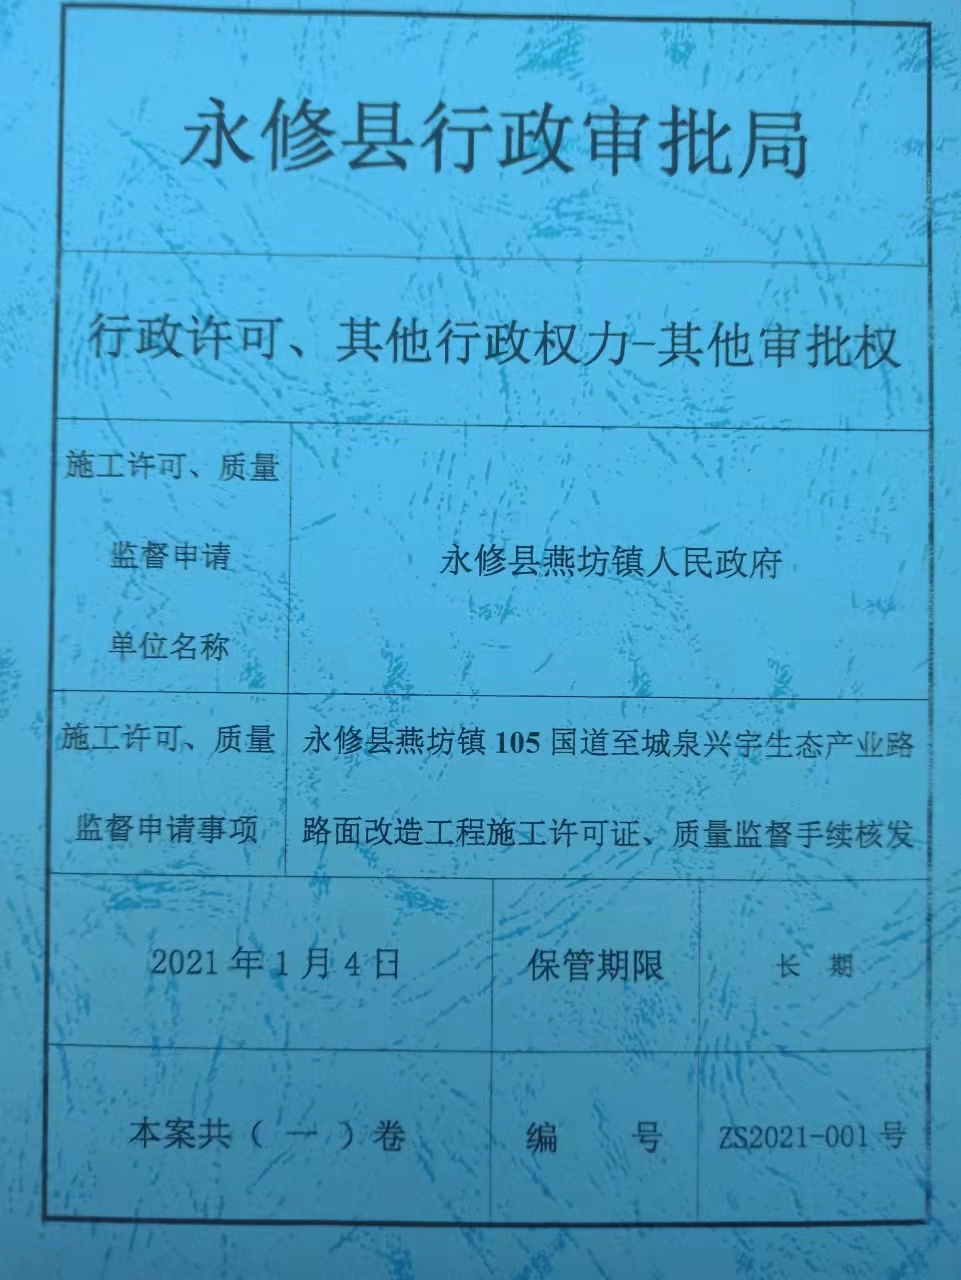 永修县行政审批局
行政许可、其他行政权力-其他审批权
施工许可、质量
监督申请
单位名称
永修县燕坊镇人民政府
施工许可、质量
监督申请事项
永修县燕坊镇 105 国道至城泉兴宇生态产业路
路面改造工程施工许可证、质量监督手续核发
2021 年 1 月 4 日
保管期限
长 期
本案共（ 一 ）卷
编 号
ZS2021-001 号